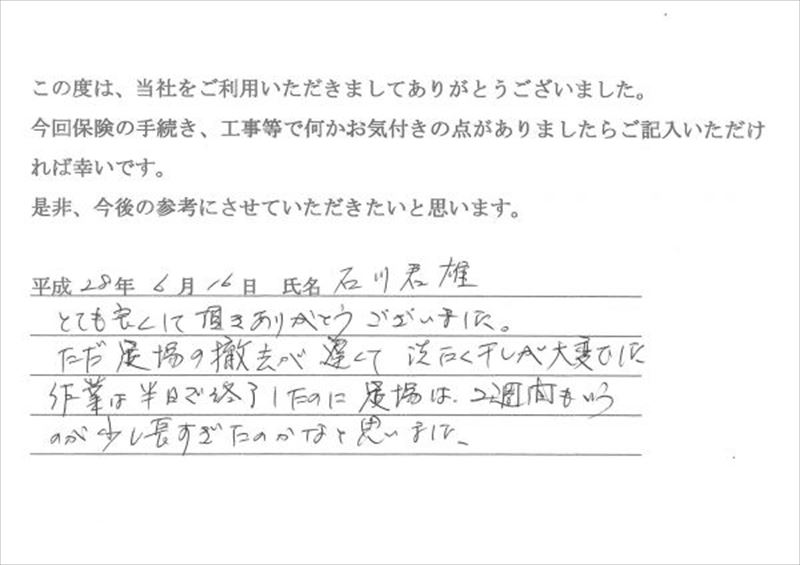 この度は、当社をご利用いただきましてありがとうございました。
今回保険の手続き、工事等で何かお気付きの点がありましたらご記入いただけ
れば幸いです。
是非、今後の参考にさせていただきたいと思います。
平成 28年 6月 16日 氏名 石川君雄
とても良くして頂きありがとうございました。
ただ足場の撤去が遅くて 洗たく干しが大変でした
作業は半日で終了したのに 足場は、2週間もいう
のが少し長すぎたのかなと思いました、